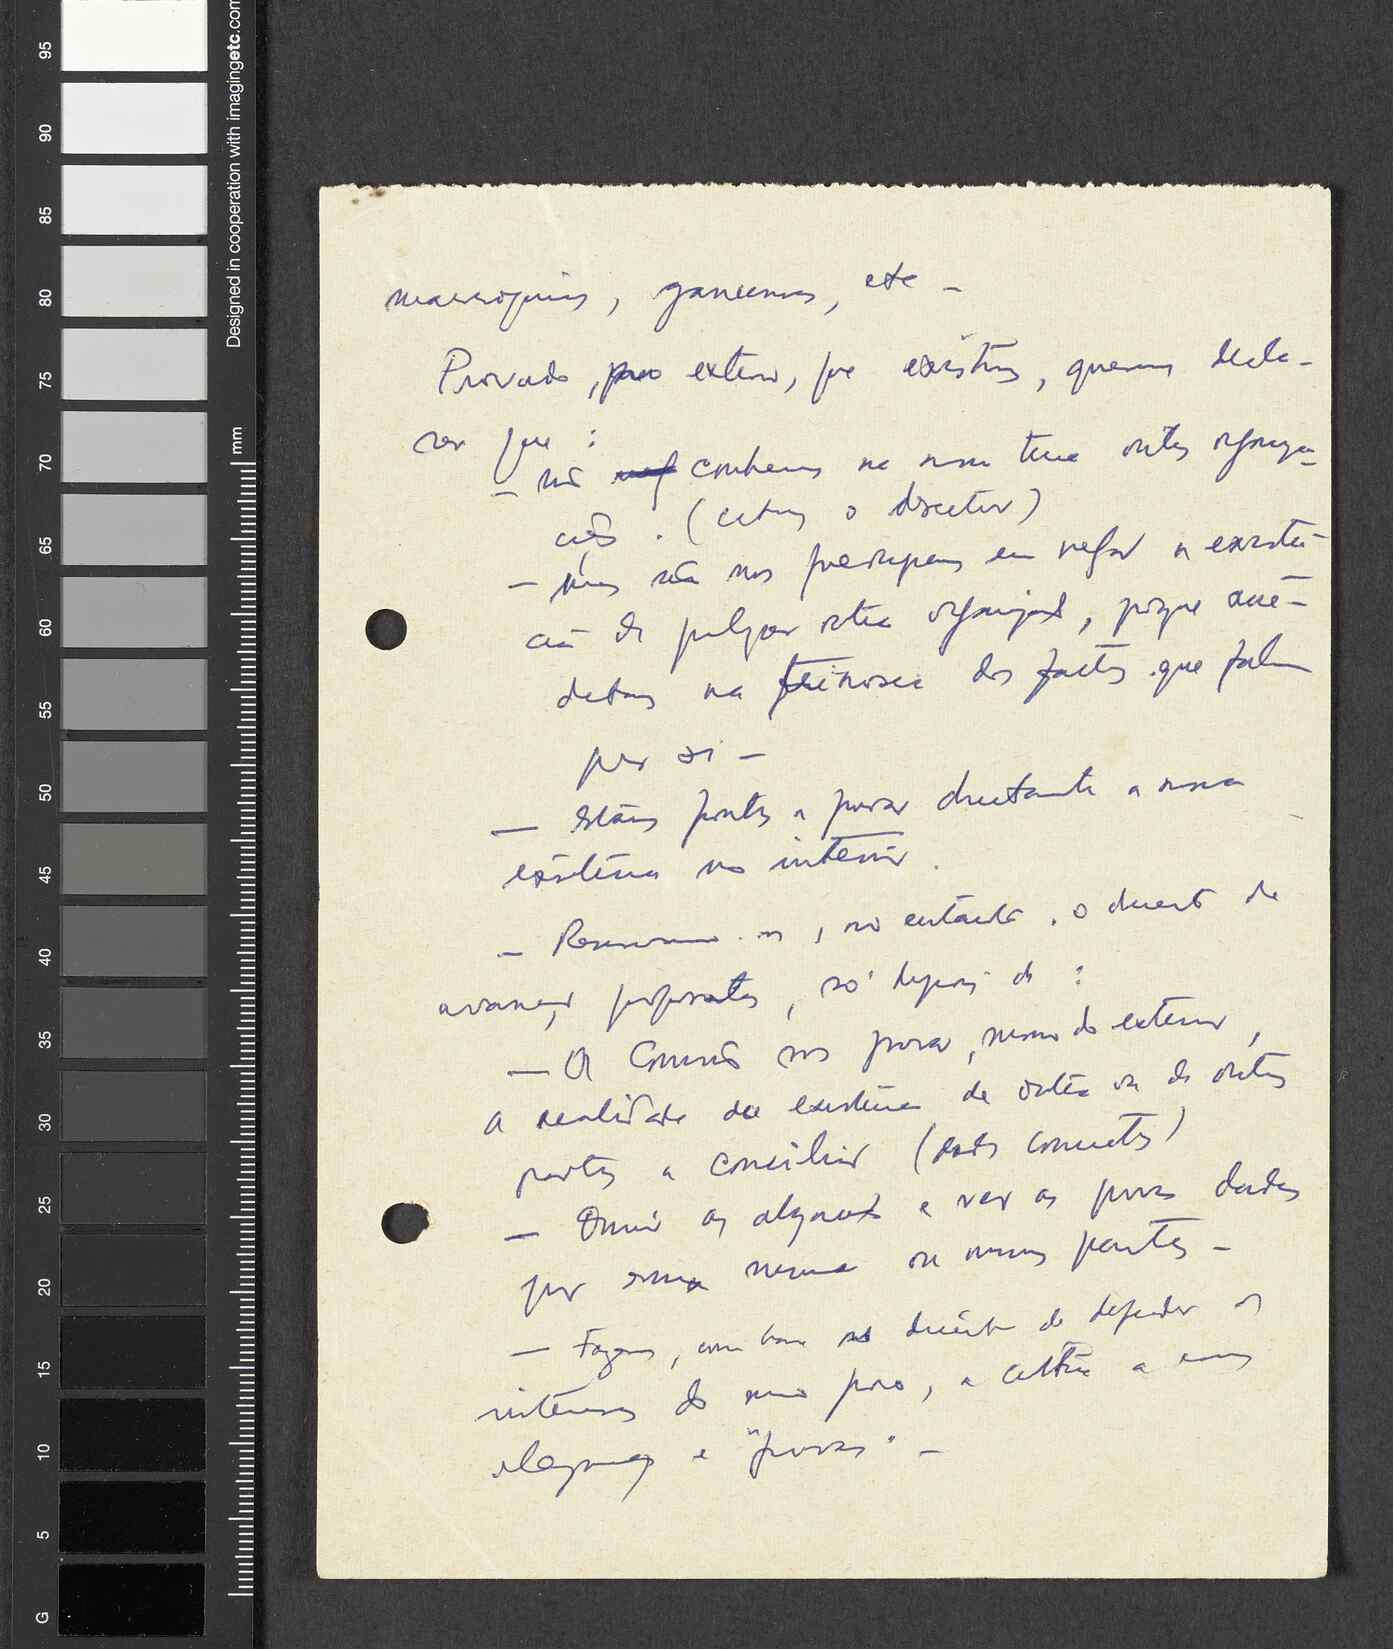 95
90
85
80
75
70
65
60
55
50
45
40
35
30
25
20
15
10
5
G
mm
Designed in cooperation with imagingetc.com
marroquinos, ganeenses, etc –
Provado, exterior, que existimos, queremos decla-
rar que :
– não conhecemos na nossa terra outras organiza-
ções . (cartas o director)
– mas não nos preocupamos em negar a existên-
cia de qualquer outra organização, porque acre-
ditamos na dos factos que falam
por si –
– estamos prontos a provar directamente a nossa
existência no interior .
– Reservamo-nos , no entanto , o direito de
avançar propostas, só depois de :
– A Comissão nos provar, mesmo do exterior,
a realidade da existência de outra ou de outras
partes a conciliar (dados concretos)
– Ouvir as alegações e ver as provas dadas
por essa mesma ou mesmas partes –
– Fazermos, com base no direito de defender os
interesses do nosso povo, a crítica a essas
alegações e "provas" –